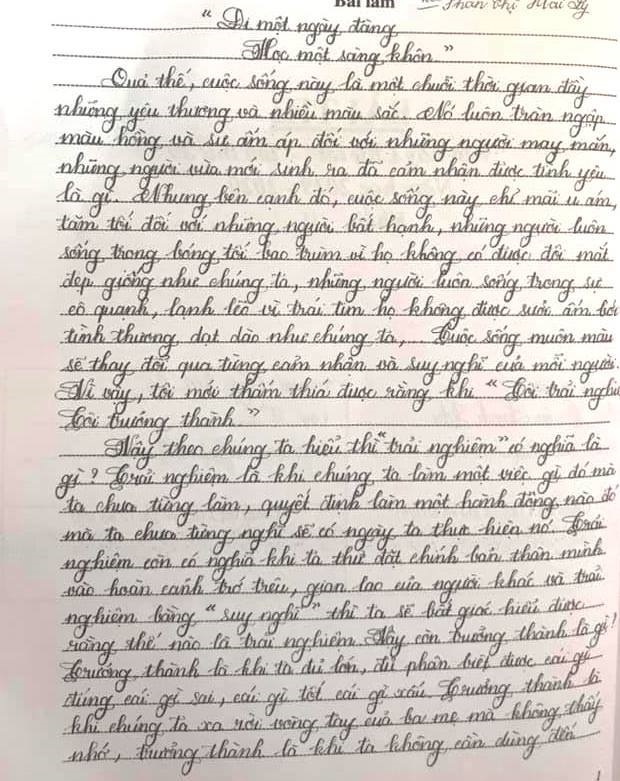 Bài làm Phan Thị Mai Ly
" Đi một ngày đàng
Học một sàng khôn "
Quả thế, cuộc sống này là một chuỗi thời gian đầy
những yêu thương và nhiều màu sắc. Nó luôn tràn ngập
màu hồng và sự ấm áp đối với những người may mắn,
những người vừa mới sinh ra đã cảm nhận được tình yêu
là gì. Nhưng bên cạnh đó, cuộc sống này chỉ mãi u ám,
tăm tối đối với những người bất hạnh, những người luôn
sống trong bóng tối bao trùm vì họ không có được đôi mắt
đẹp giống như chúng ta, những người luôn sống trong sự
cô quạnh, lạnh lẽo vì trái tim họ không được sưởi ấm bởi
tình thương dạt dào như chúng ta,... Cuộc sống muôn màu
sẽ thay đổi qua từng cảm nhận và suy nghĩ của mỗi người.
Vì vậy, tôi mới thấm thía được rằng khi " Tôi trải nghiệ
Tôi trưởng thành. "
Vậy theo chúng ta hiểu thì "trải nghiệm" có nghĩa là
gì? Trải nghiệm là khi chúng ta làm một việc gì đó mà
ta chưa từng làm, quyết định làm một hành động nào đó
mà ta chưa từng nghĩ sẽ có ngày ta thực hiện nó. Trải
nghiệm còn có nghĩa khi ta thử đặt chính bản thân mình
vào hoàn cảnh trớ trêu, gian lao của người khác và trải
nghiệm bằng " suy nghĩ " thì ta sẽ bất giác hiểu được
rằng thế nào là trải nghiệm. Vậy còn trưởng thành là gì?
Trưởng thành là khi ta đủ lớn, đủ phân biệt được cái gì
đúng cái gì sai, cái gì tốt cái gì xấu. Trưởng thành là
khi chúng ta xa rời vòng tay của ba mẹ mà không thấy
nhớ, trưởng thành là khi ta không cần dùng đến